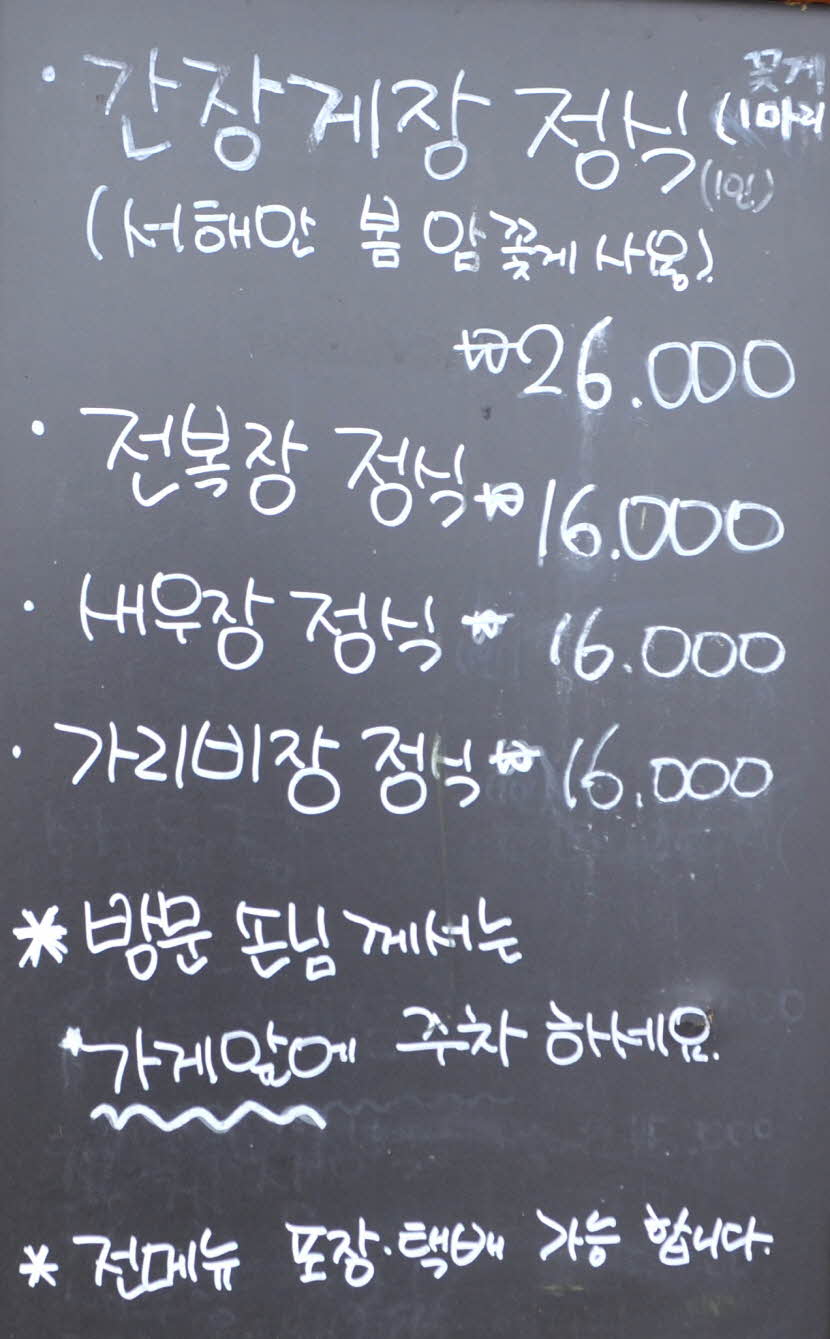 · 간장게장 정식 (꽃게 1마리
(1인)
(서해안 봄 암꽃게 사용).
₩26.000
· 전복장 정식 ₩16.000
· 새우장 정식 ₩16.000
· 가리비장 정식 ₩16.000
* 방문 손님 께서는
*가게앞에 주차 하세요.
* 전메뉴 포장·택배 가능 합니다.